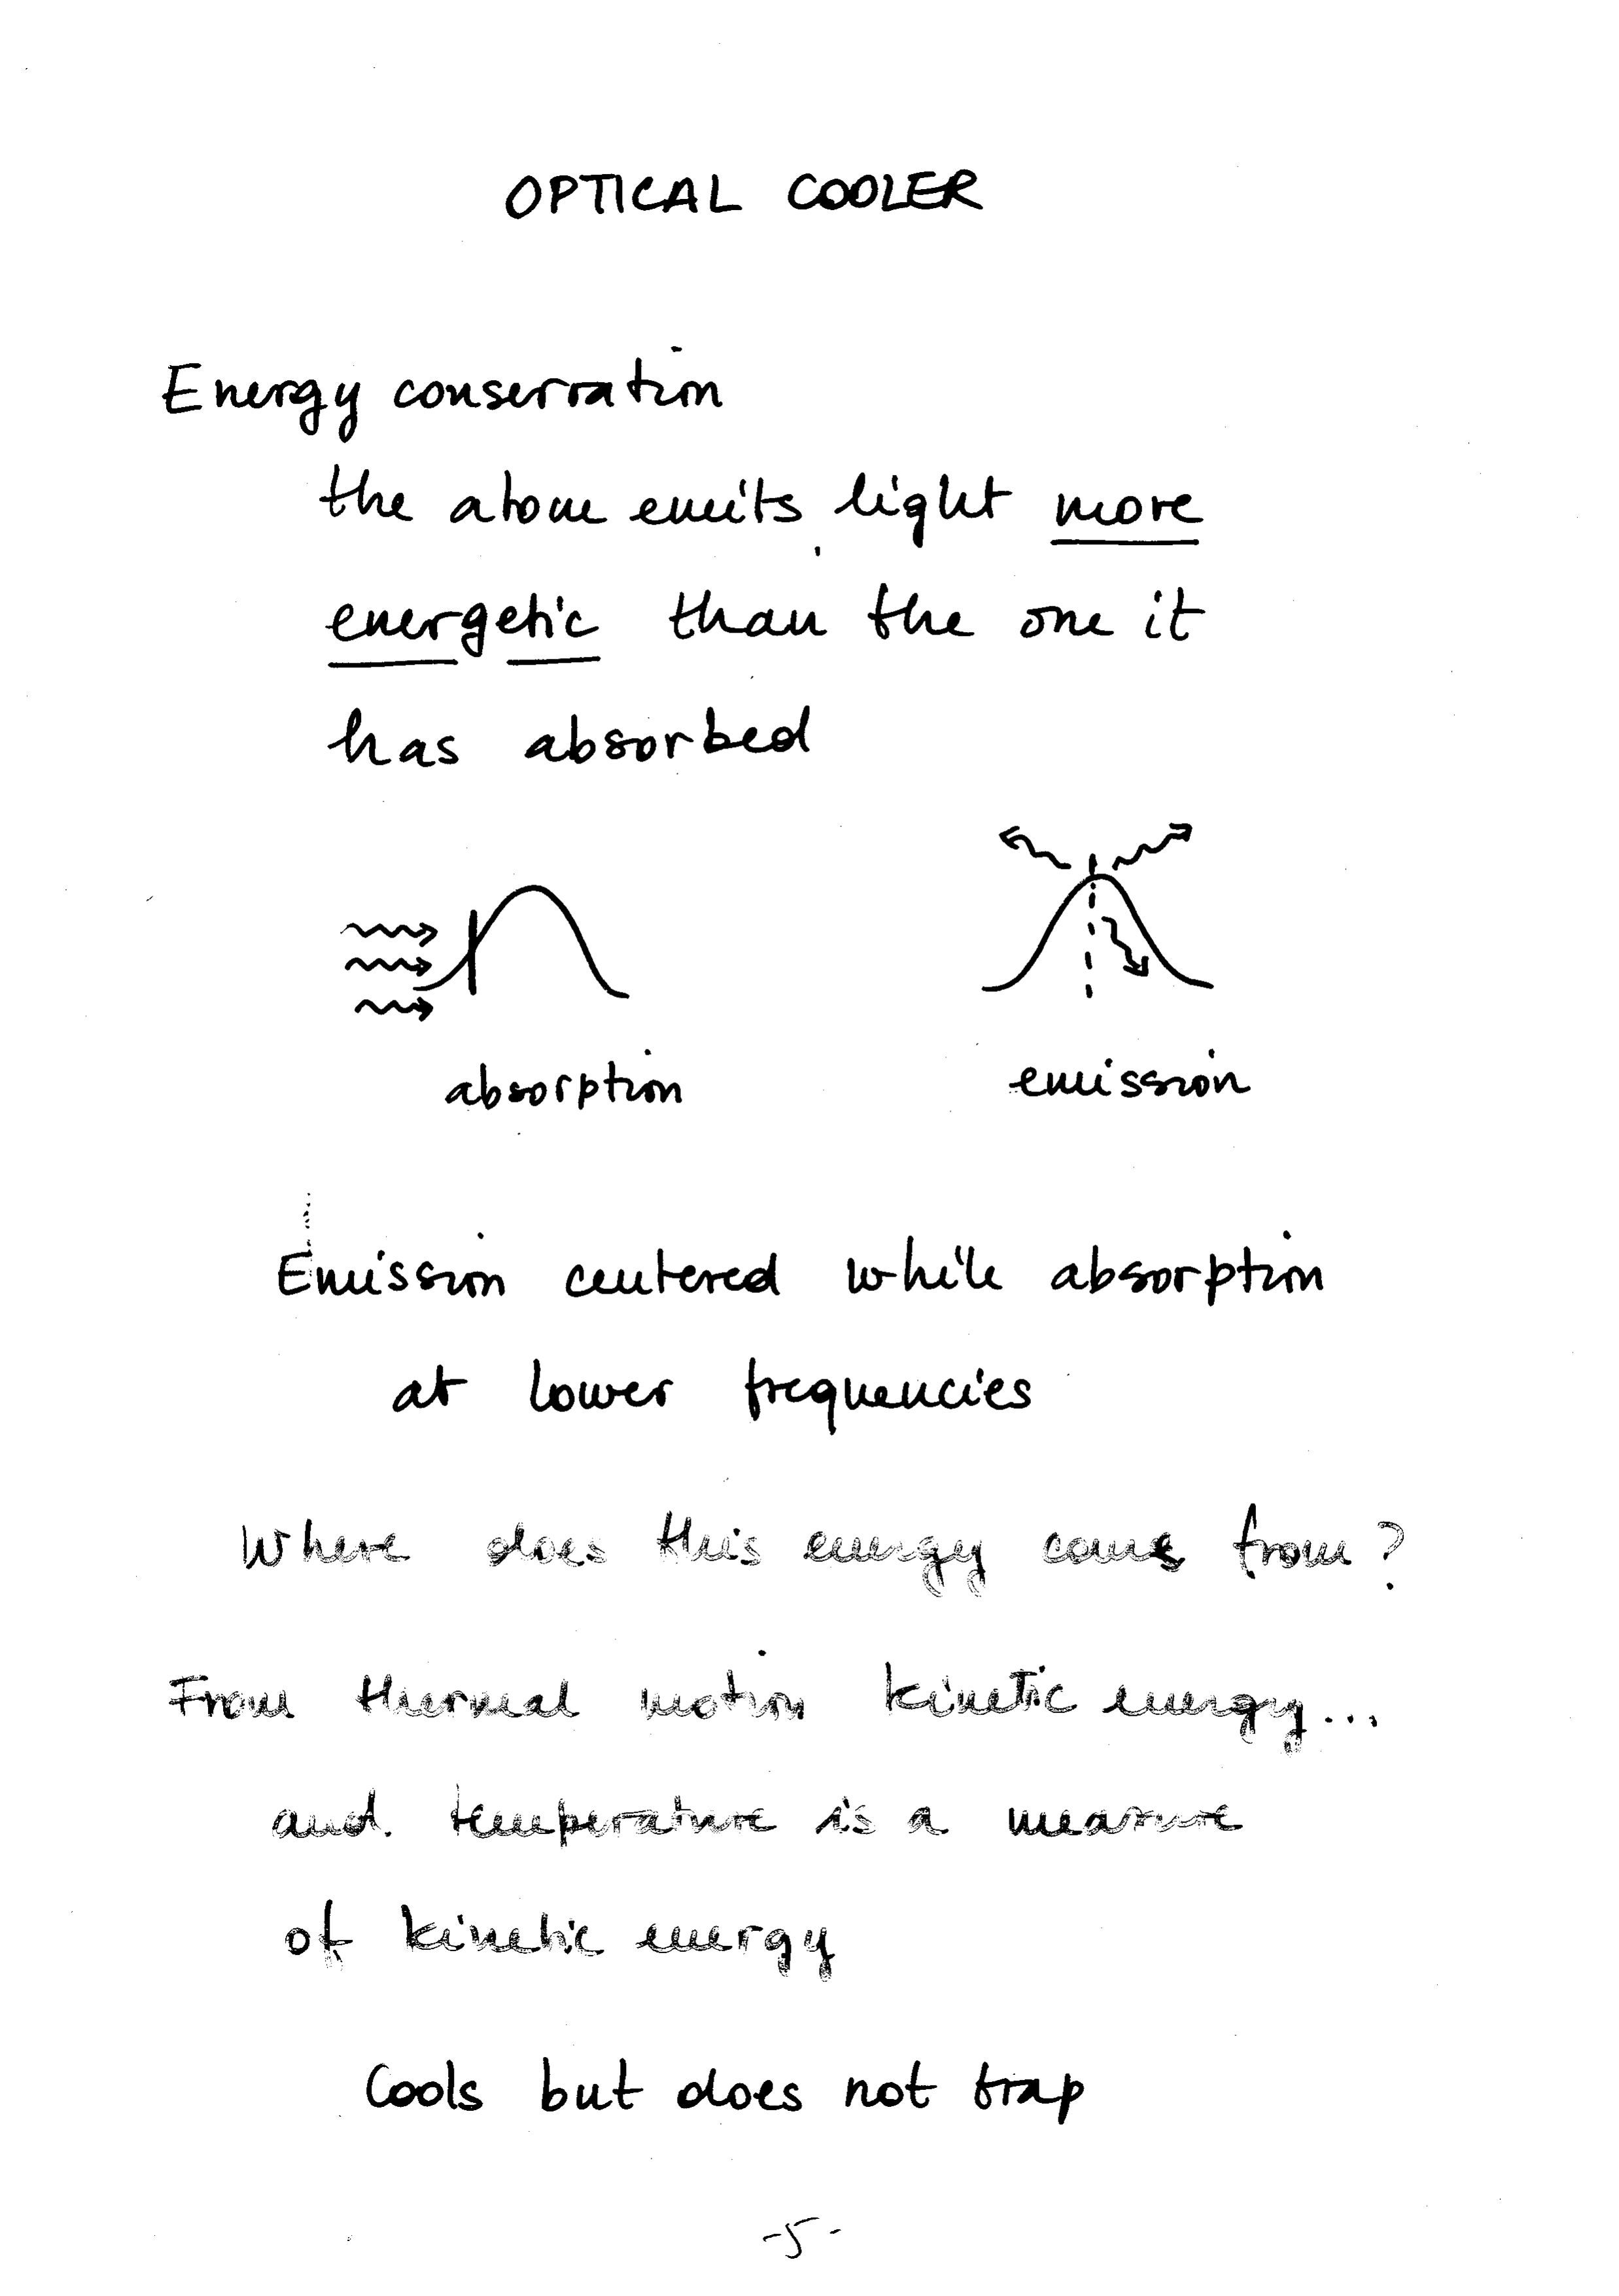 OPTICAL COOLER
Energy conservation
the atom emits light more
energetic than the one it
has absorbed
absorption emission
Emission centered while absorption
at lower frequencies
Where does this energy come from?
From thermal motion kinetic energy...
and temperature is a measure
of kinetic energy
Cools but does not trap
-5-